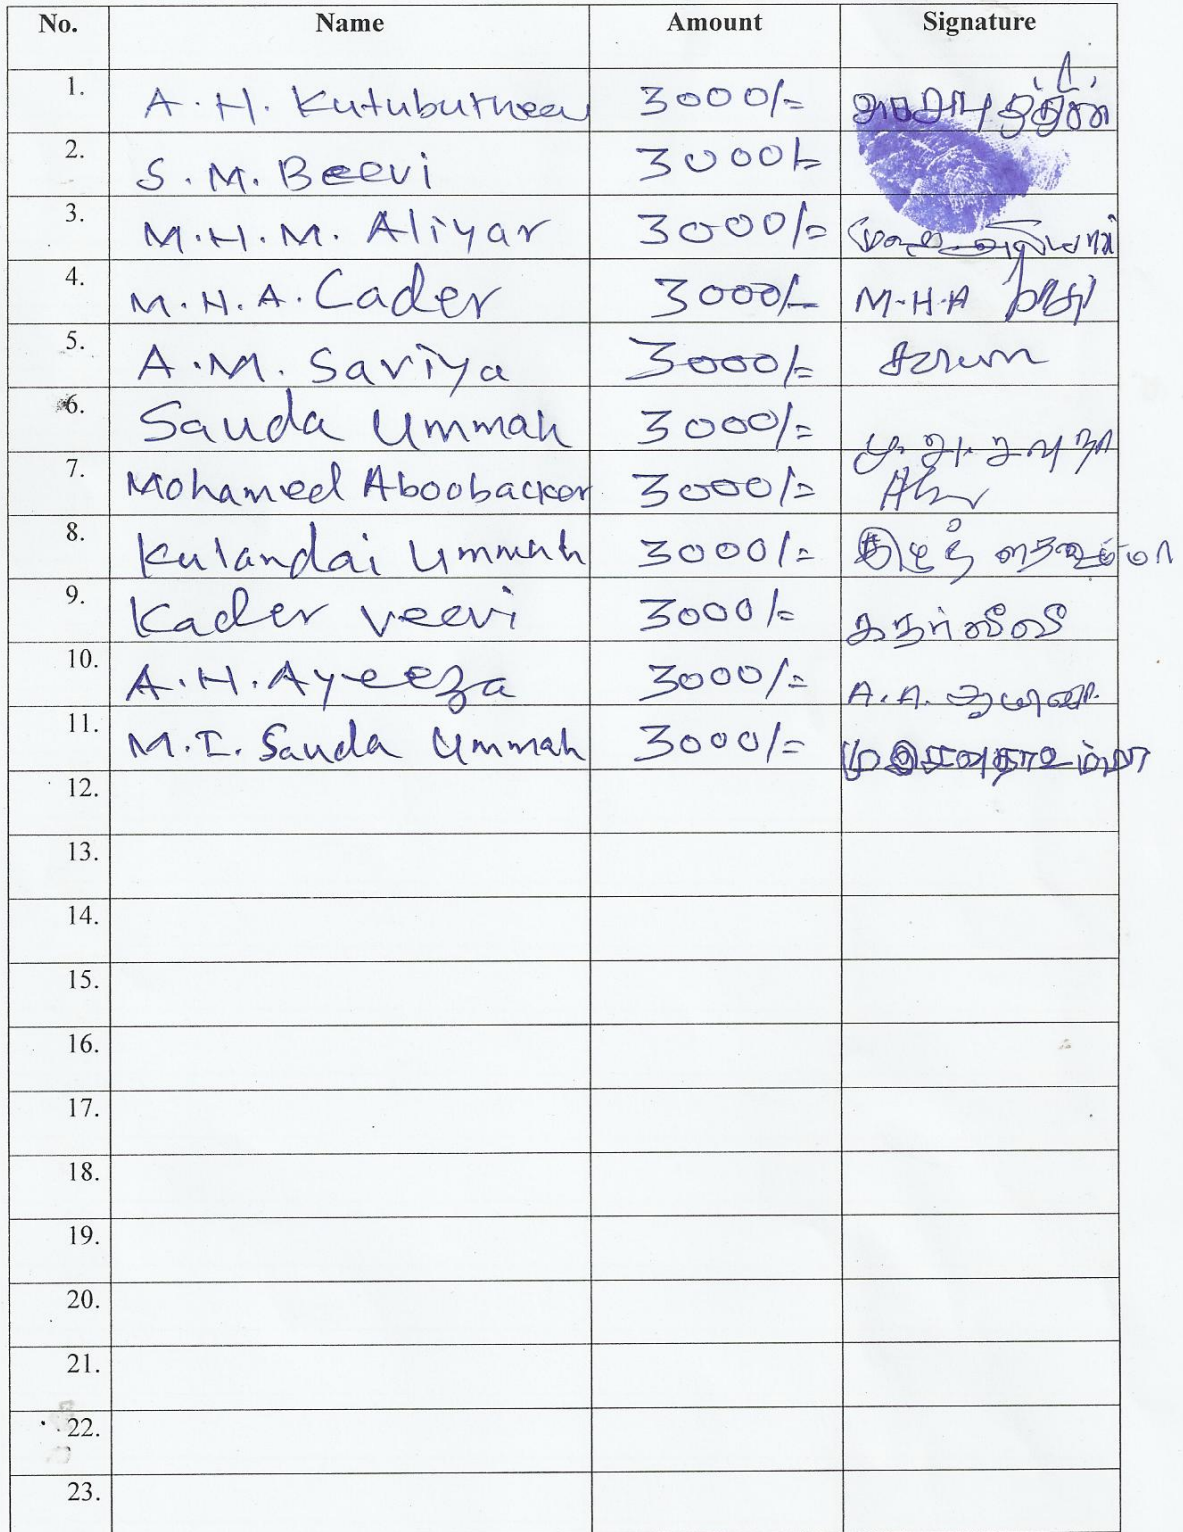 No. Name Amount Signature
1. A. H. Kutubutheen 3000/=
2. S. M. Beevi 3000/=
3. M. H. M. Aliyar 3000/=
4. M. H. A. Cader 3000/= M-H-A
5. A. M. Sariya 3000/=
6. Sauda Ummah 3000/=
7. Mohamed Aboobacker 3000/=
8. Kulandai Ummah 3000/=
9. Kader veevi 3000/= கதர்வீவி
10. A. H. Ayeeza 3000/= A. A.
11. M. I. Sauda Ummah 3000/=
12.
13.
14.
15.
16.
17.
18.
19.
20.
21.
22.
23.